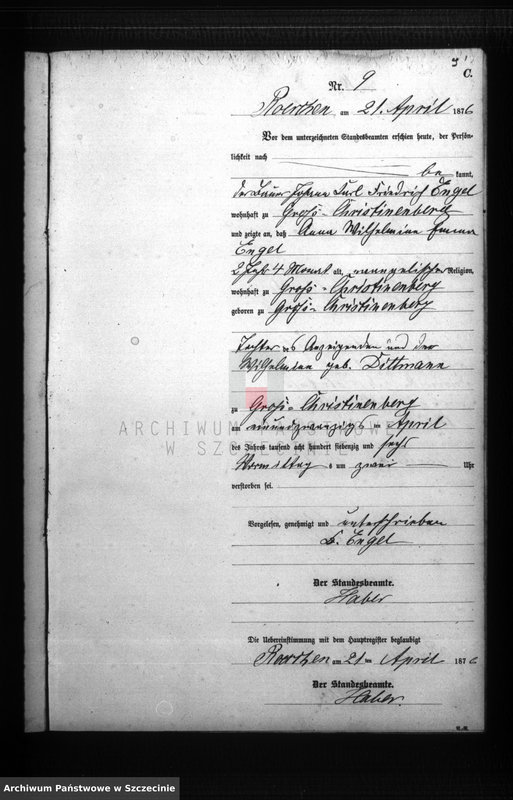 C.
Nr. 9
Roerchen am 21. April 1876
Vor dem unterzeichneten Standesbeamten erschien heute, der Persön-
lichkeit nach
be kannt,
der Bauer Johann Carl Friedrich Engel
wohnhaft zu Groß-Christinenberg
und zeigte an, daß Anna Wilhelmine Emma
Engel
2 Jahr 4 Monat alt, evangelischer Religion,
wohnhaft zu Groß-Christinenberg
geboren zu Groß-Christinenberg
Tochter des Anzeigenden und der
Wilhelmine geb. Dittmann
zu Groß-Christinenberg
am einundzwanzigsten April
des Jahres tausend acht hundert siebenzig und sechs
Vormittags um zwei Uhr
verstorben sei.
Vorgelesen, genehmigt und unterschrieben
Engel
Der Standesbeamte.
Haber
Die Uebereinstimmung mit dem Hauptregister beglaubigt
Roerchen am 21 ten April 1876
Der Standesbeamte.
Haber.
ARCHIWUM PAŃSTWOWE
W SZCZECINIE
Archiwum Państwowe w Szczecinie